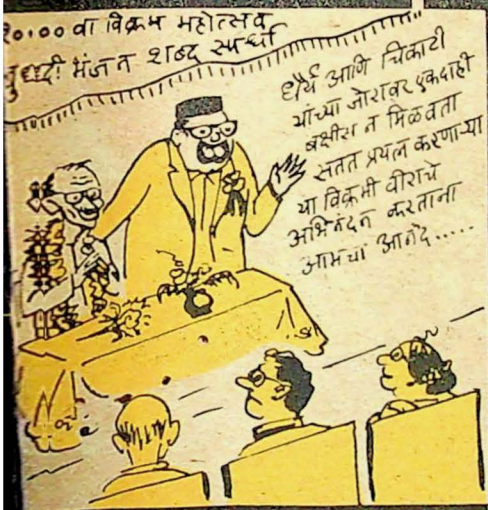 २०१०० वा विक्रम महोत्सव
बुध्दी मंजन शब्द स्पर्धा
धैर्य आणि चिकाटी
यांच्या जोरावर एकदाही
बक्षीस न मिळवता
सतत प्रयत्न करणाऱ्या
या विक्रमी वीराचे
अभिनंदन करताना
आमचा आनंद.....